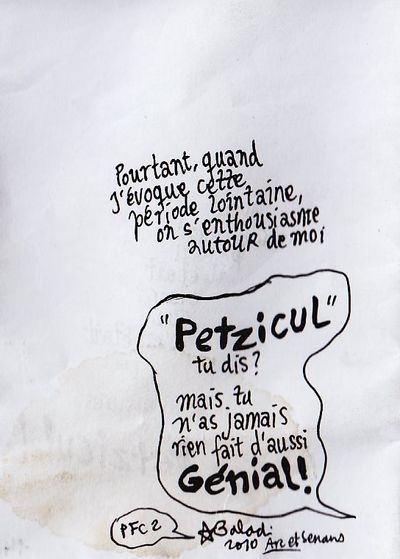 Pourtant, quand
j'évoque cette
période lointaine,
on s'enthousiasme
autour de moi
"Petzicul"
tu dis?
mais tu
n'as jamais
rien fait d'aussi
Génial!
PFC2
Baladi
2010 Arc et Senans